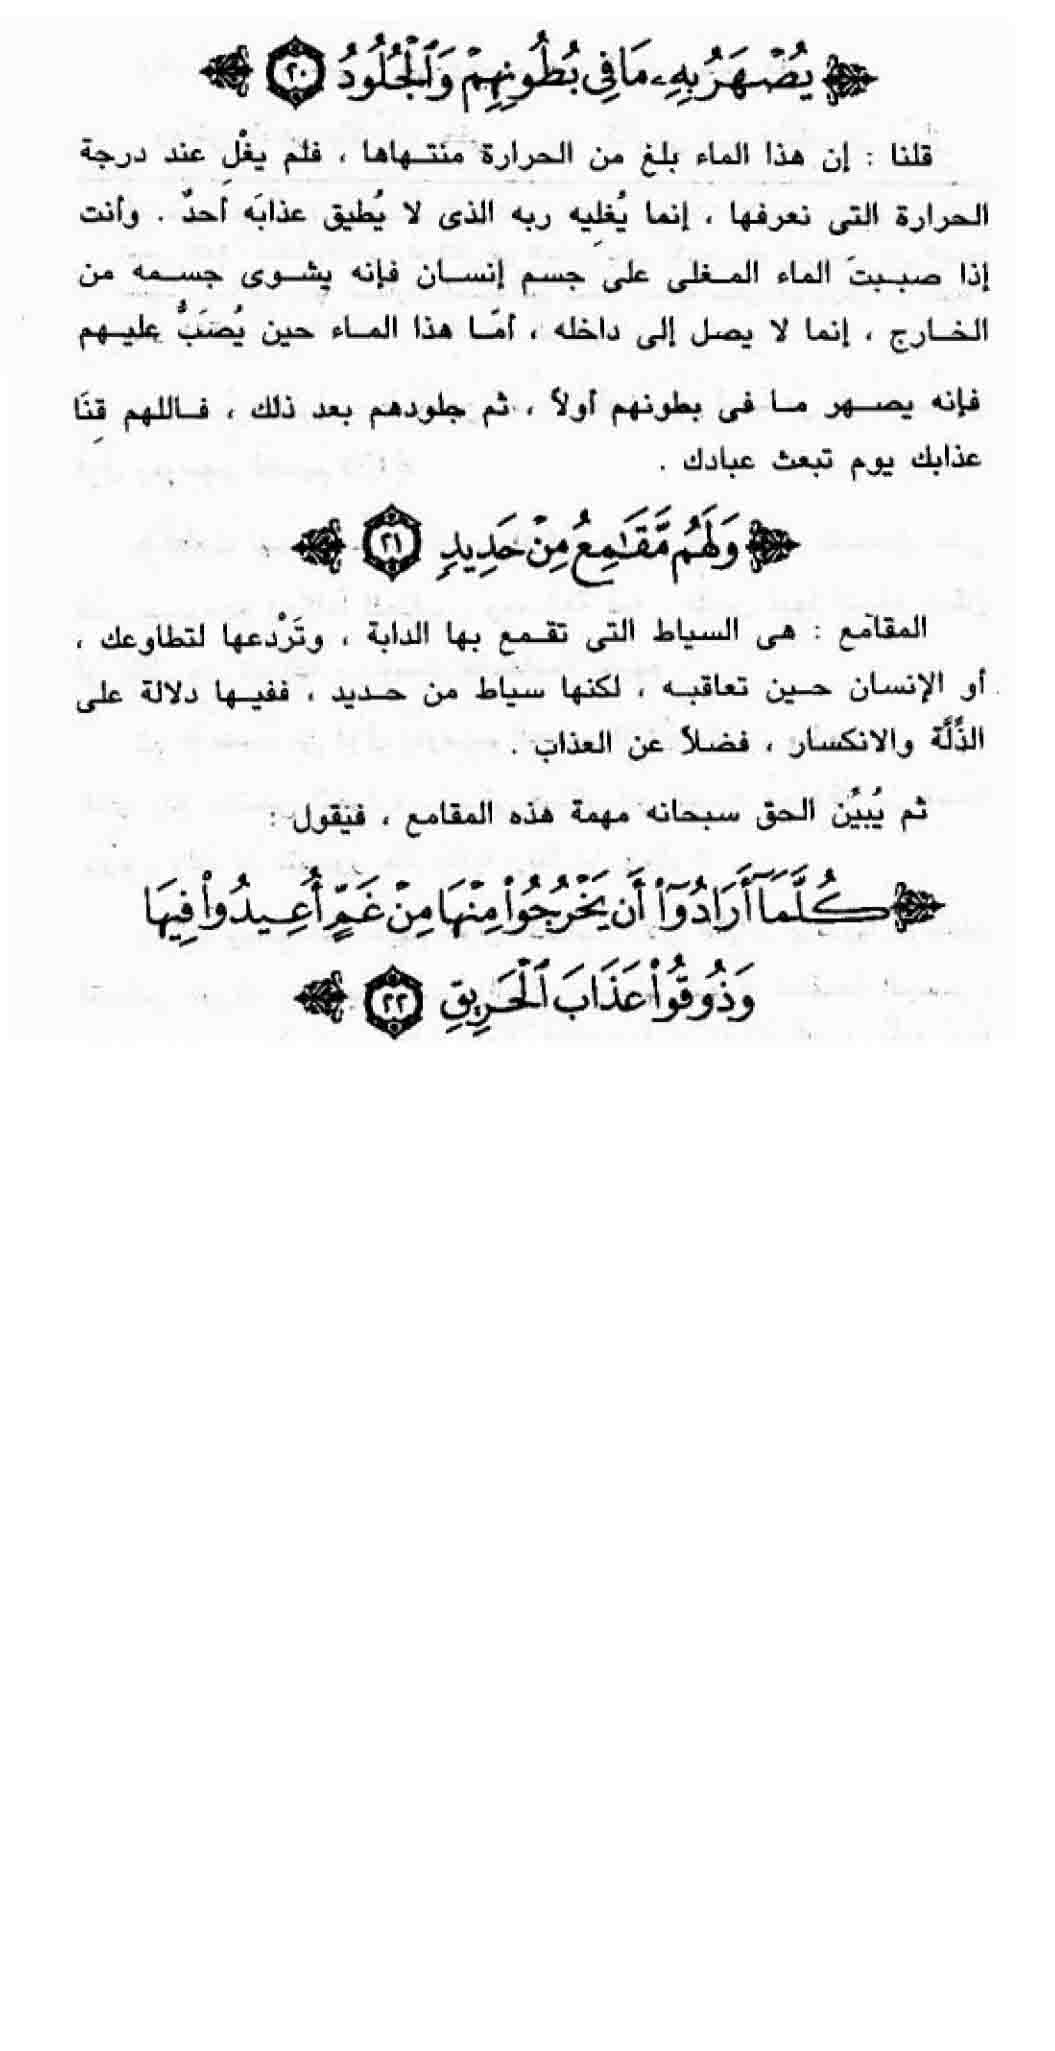 ﴿ يُصْهَرُ بِهِۦ مَا فِى بُطُونِهِمْ وَٱلْجُلُودُ ٢٠ ﴾
قلنا : إن هذا الماء بلغ من الحرارة منتهاها ، فلم يغْلِ عند درجة
الحرارة التى نعرفها ، إنما يُغلِيه ربه الذى لا يُطيق عذابَه أحدٌ . وأنت
إذا صببتَ الماء المغلى على جسم إنسان فإنه يشوى جسمه من
الخارج ، إنما لا يصل إلى داخله ، أمّا هذا الماء حين يُصَبُّ عليهم
فإنه يصهر ما فى بطونهم أولاً ، ثم جلودهم بعد ذلك ، فاللهم قِنَا
عذابك يوم تبعث عبادك .
﴿ وَلَهُم مَّقَٰمِعُ مِنْ حَدِيدٍ ٢١ ﴾
المقامع : هى السياط التى تقمع بها الدابة ، وتَرْدعها لتطاوعك ،
أو الإنسان حين تعاقبه ، لكنها سياط من حديد ، ففيها دلالة على
الذِّلَّة والانكسار ، فضلاً عن العذاب .
ثم يُبيِّن الحق سبحانه مهمة هذه المقامع ، فيقول :
﴿ كُلَّمَآ أَرَادُوٓا۟ أَن يَخْرُجُوا۟ مِنْهَا مِنْ غَمٍّ أُعِيدُوا۟ فِيهَا
وَذُوقُوا۟ عَذَابَ ٱلْحَرِيقِ ٢٢ ﴾